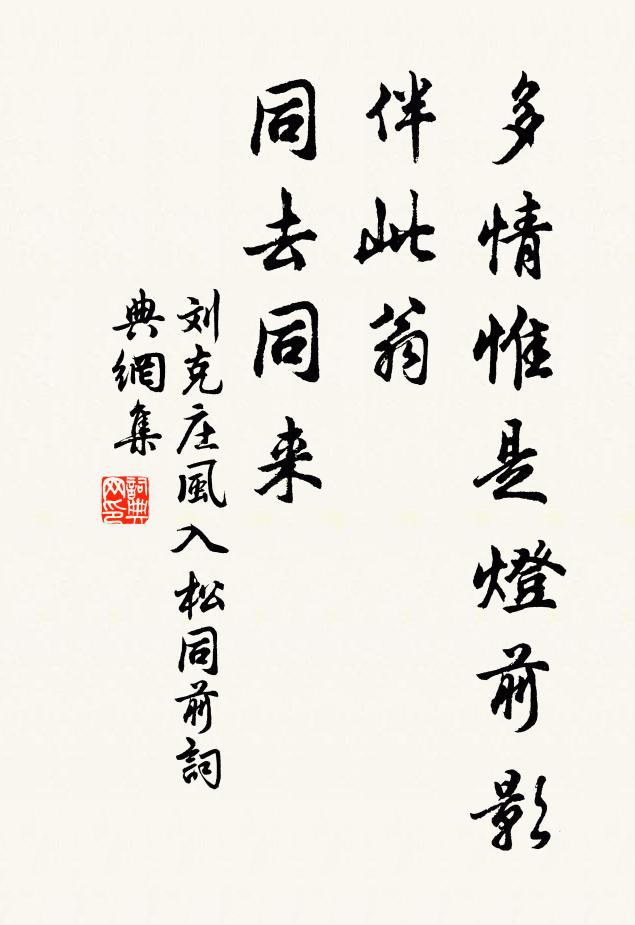 多情惟是燈前影
伴此翁
同去同来
刘克庄風入松同前詞
典網集
詞典
网印